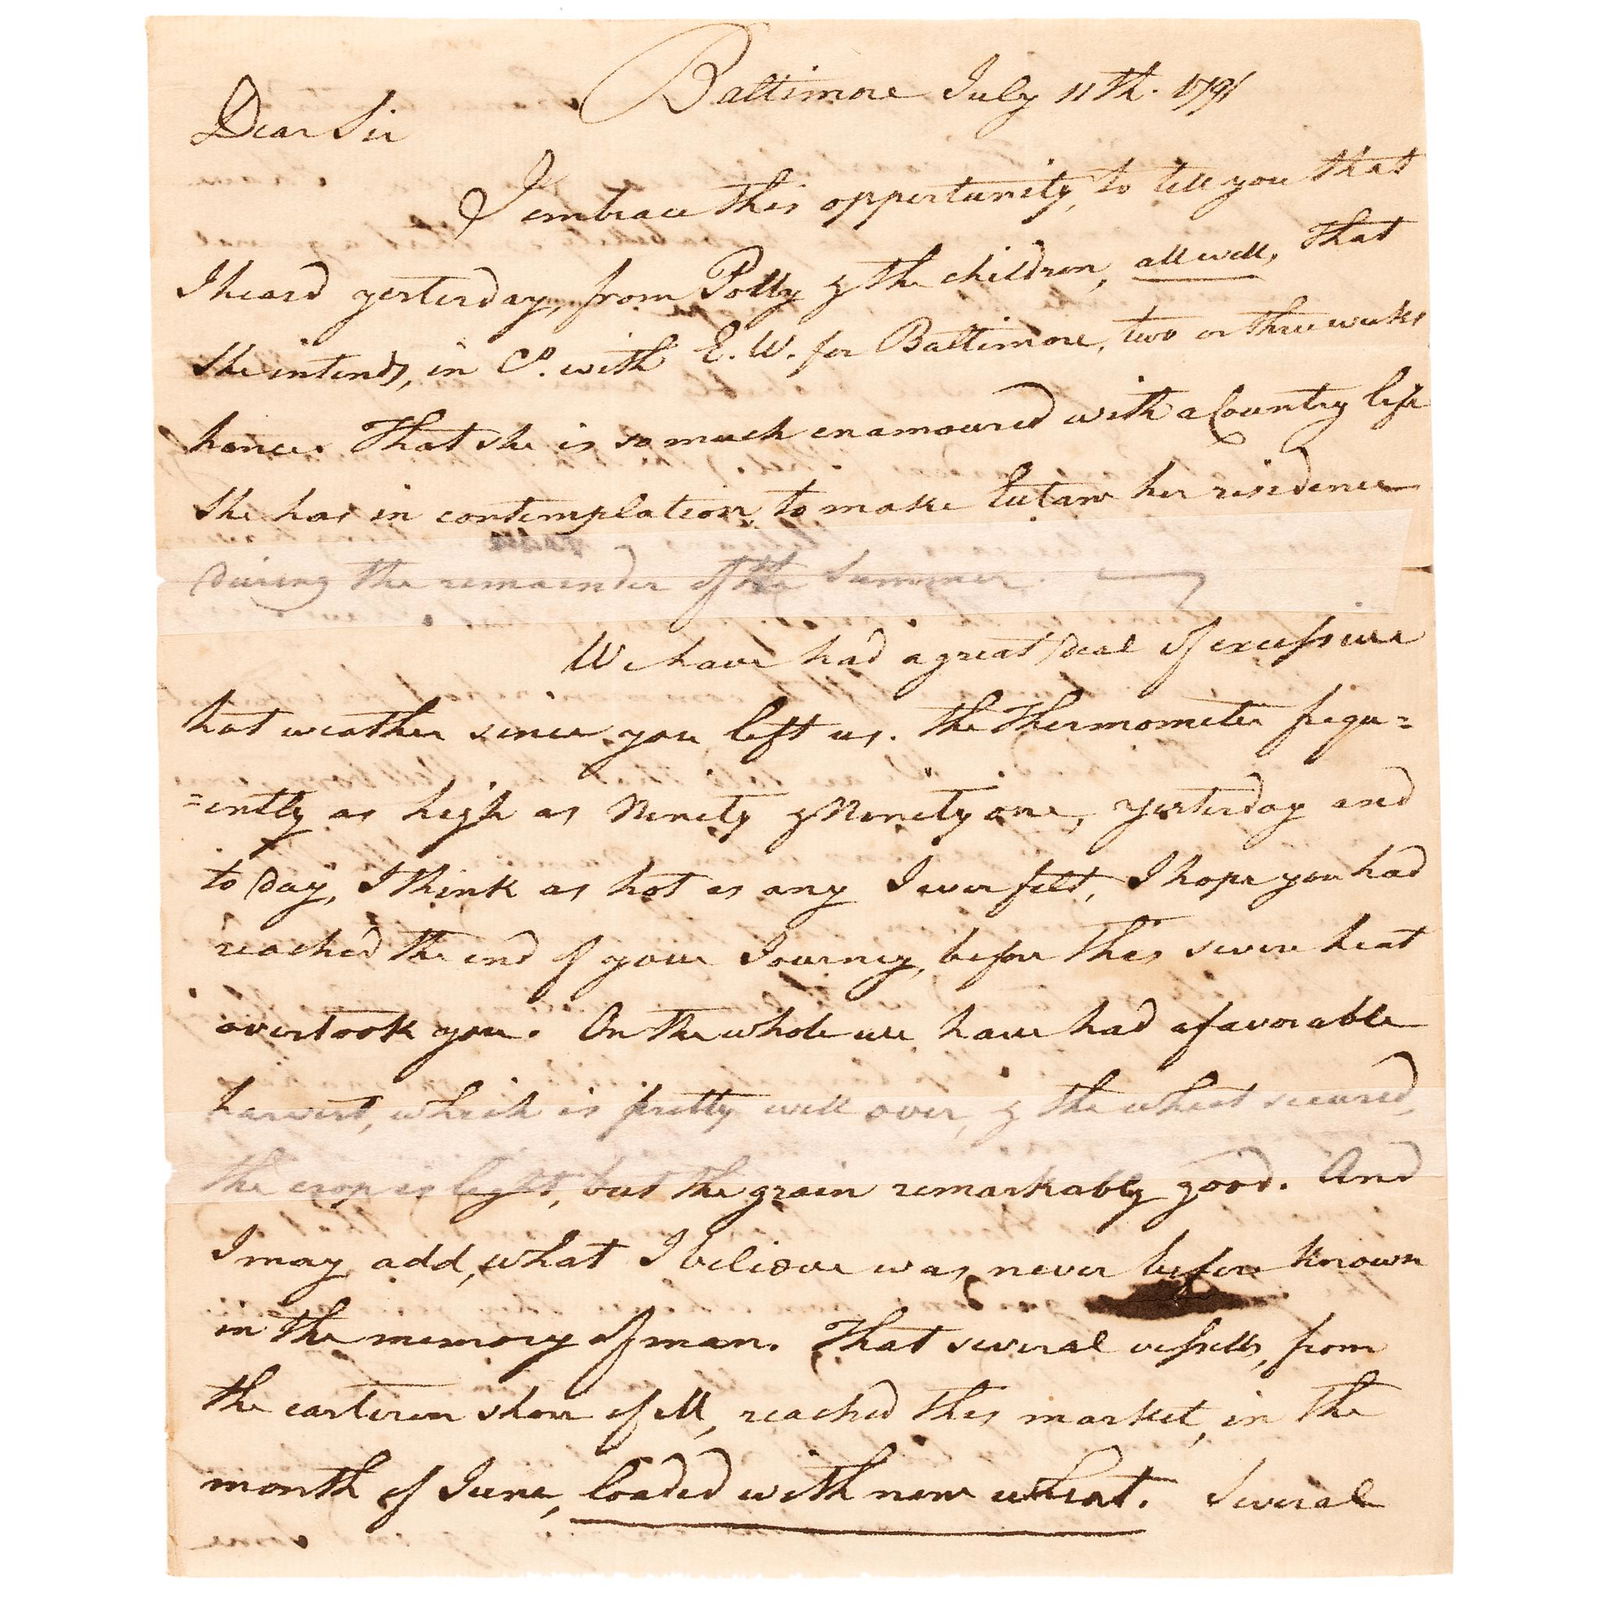 Baltimore July 11th. 1791
Dear Sir
I embrace this opportunity, to tell you that
I heard yesterday, from Polly & the children, all well, that
She intends, in Co. with E. W. for Baltimore, two or three weeks
hence. That she is so much enamoured with a Country life
She has in contemplation, to make Eutaw her residence
during the remainder of the Summer.
We have had a great deal of excessive
hot weather since you left us. the Thermometer frequ=
=ently as high as Ninety & Ninety one, yesterday and
to day, I think as hot as any I ever felt, I hope you had
reached the end of your Journey, before this severe heat
overtook you. On the whole we have had a favorable
harvest, which is pretty well over, & the wheat secured,
the crop is light, but the grain remarkably good. And
I may add, what I believe was never before known
in the memory of man. That several vessells, from
the eastern shore of M, reached this market, in the
month of June, loaded with new wheat. Several